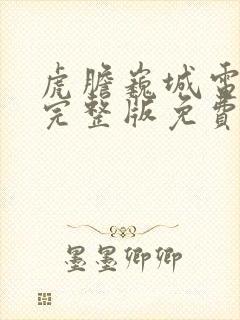 虎膽巍城電
完整版免費
墨墨卿卿